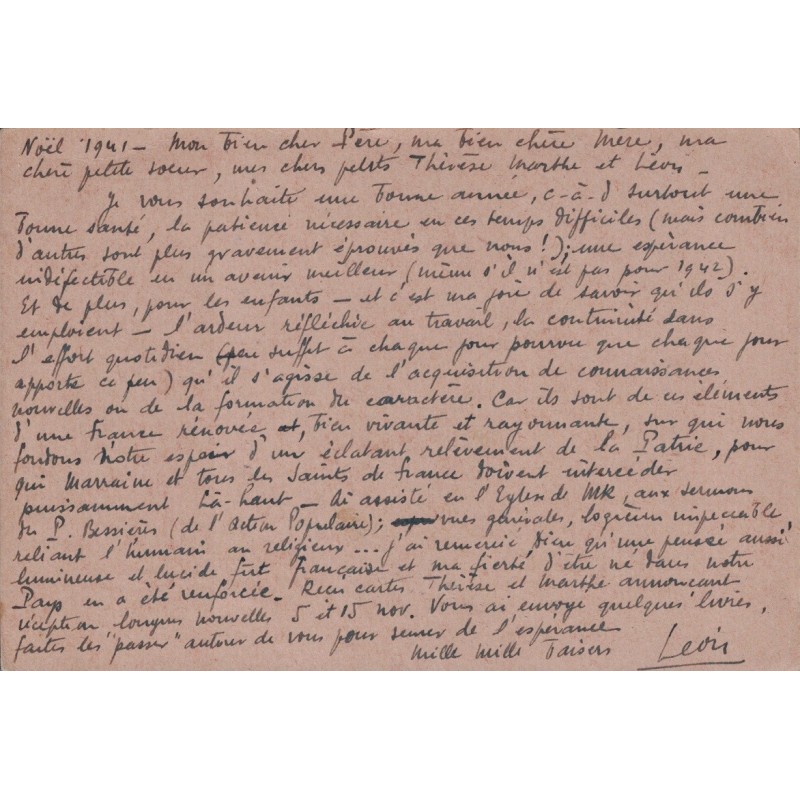 Noël 1941 - Mon bien cher Père, ma bien chère Mère, ma
chère petite soeur, mes chers petits Thérèse Marthe et Léon -
Je vous souhaite une bonne année, c-à-d surtout une
bonne santé, la patience nécessaire en ces temps difficiles (mais combien
d'autres sont plus gravement éprouvés que nous !); une espérance
indéfectible en un avenir meilleur (même s'il n'est pas pour 1942).
Et de plus, pour les enfants - et c'est ma joie de savoir qu'ils s'y
emploient - l'ardeur réfléchie au travail, la continuité dans
l'effort quotidien (peu suffit à chaque jour pourvu que chaque jour
apporte ce peu) qu'il s'agisse de l'acquisition de connaissances
nouvelles ou de la formation du caractère. Car ils sont de ces éléments
d'une France rénovée, bien vivante et rayonnante, sur qui nous
fondons notre espoir d'un éclatant relèvement de la Patrie, pour
qui Marraine et tous les Saints de France doivent intercéder
puissamment Là-haut - Ai assisté en l'Eglise de MK, aux sermons
du P. Bessières (de l'Action Populaire); vues générales, logicien impeccable
reliant l'humain au religieux ... j'ai remercié Dieu qu'une pensée aussi
lumineuse et lucide fut Française et ma fierté d'être né dans notre
Pays en a été renforcée. Reçu cartes Thérèse et Marthe annonçant
réception longues nouvelles 5 et 15 nov. Vous ai envoyé quelques livres,
faites les "passer" autour de vous pour semer de l'espérance
Mille mille baisers Léon